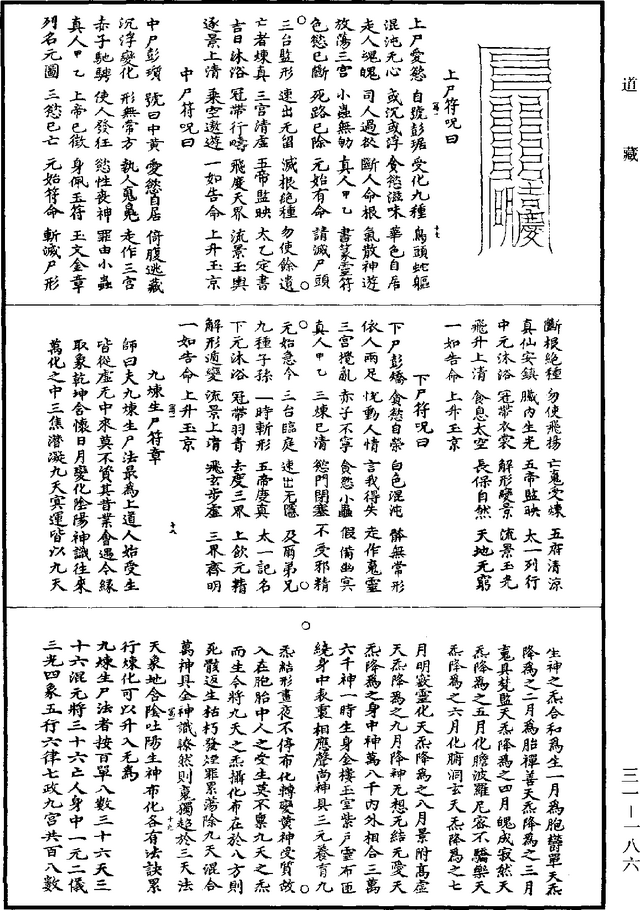 道藏
上尸符呪曰
上尸愛慾 自號彭琚 受化九種 鳥頭蛇軀
混沌无心 或沉或浮 貪慾滋味 華色自居
走人魂魄 司人過於 斷人命根 氣散神遊
放蕩三宮 小蟲無的 真人甲乙 書篆靈符
色慾已斷 死路已除 元始有命 請滅尸頭
三台監形 速出无留 滅根絕種 勿使餘遺
亡者煉真 三宮清虛 五帝監映 太乙定書
吉日沐浴 冠帶行疇 飛度天界 流景玉輿
逐景上清 乘空遨遊 一如告命 上升玉京
中尸符呪曰
中尸彭瓆 號曰中黃 愛慾自居 倚腹逃藏
沉浮變化 形無常方 執人鬼 走作三宮
赤子馳騁 使人發狂 慾性喪神 罪由小蟲
真人甲乙 上帝已徵 身佩玉符 玉文金章
列名元圖 三慾已亡 元始符命 斬滅尸形
斷根絕種 勿使飛揚 亡鬼受煉 五府清涼
真仙安鎮 臟內生光 五帝監映 太一列行
中元沐浴 冠帶衣裳 解形變景 流景玉光
飛升上清 食息太空 長保自然 天地无窮
一如告命 上升玉京
下尸符呪曰
下尸彭矯 貪慾自榮 白色混沌 體無常形
依人兩足 恍動人情 言我得失 走作鬼靈
三宮攪亂 赤子不寧 貪慾小蟲 假備幽冥
真人甲乙 三煉已清 慾門閉塞 不受邪精
元始急令 三台臨庭 速出无隱 及爾弟兄
九種子孫 一時斬形 五帝度真 太一記名
下元沐浴 冠帶羽青 去度三界 上飲元精
解形適變 流景上清 飛玄步虛 三界齊明
一如告命 上升玉京
九煉生尸符章
師曰夫九煉生尸法最為上道人始受生
皆從虛无中來莫不資其昔業會遇今緣
取象乾坤合懷日月變化陰陽神識往來
萬化之中三焦潛凝九天冥運皆以九天
生神之炁合和為生一月為胞鬱單天炁
降為之二月為胎禪善天炁降為之三月
魂具梵監天炁降為之四月魄成寂然天
炁降為之五月化膽波羅尼密不驕樂天
炁降為之六月化腑洞玄天炁降為之七
月明竅靈化天炁降為之八月景附高虛
天炁降為之九月降神无想无結无愛天
炁降為之身中神萬八千內外相合三萬
六千神一時生身金樓玉室紫戶靈布匝
繞身中表裏相應聲尚神具三元養育九
炁結形晝夜不停布化轉變黃神受質故
入在胞胎中人之受生莫不稟九天之炁
而生今將九天之炁攝化布在於八方則
死骸返生枯朽發煙罪累蕩除九天混合
萬神具全神識瞭然則稟獨超於三天法
天象地合陰吐陽生神布化各有法訣累
行煉化可以升入无為
九煉生尸法者按百單八數三十六天三
十六混元將三十六亡人身中一元二儀
三光四象五行六律七政九宮共百八數
三一—一八六